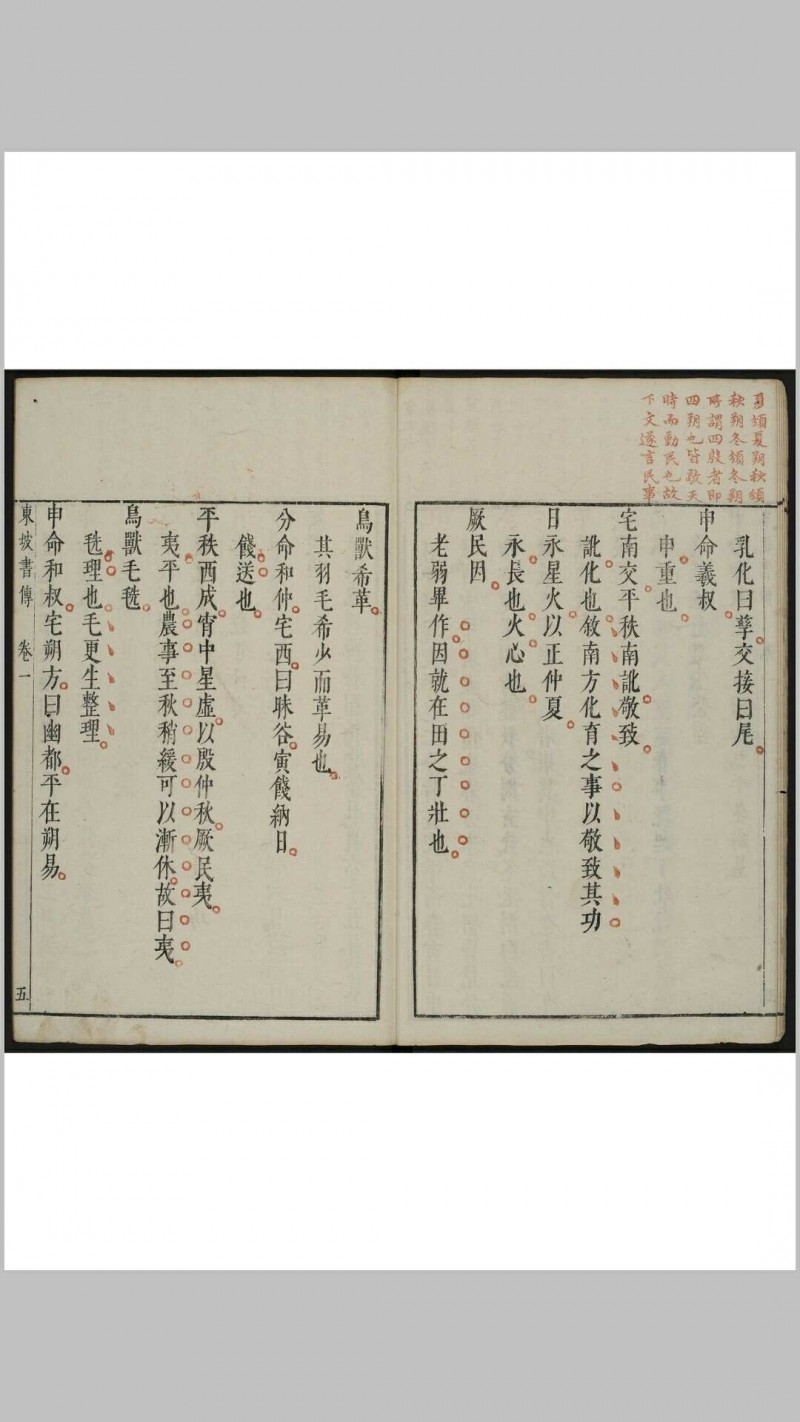 夏頒夏朔秋頒
秋朔冬頒冬朔
所謂四殷者即
四朔也皆敬天
時而勤民也故
下文遂言民事
乳化曰孳交接曰尾
申命羲叔
申重也
宅南交平秩南訛敬致
訛化也敘南方化育之事以敬致其功
日永星火以正仲夏
永長也火心也
厥民因
老弱畢作因就在田之丁壯也
鳥獸希革
其羽毛希少而革易也
分命和仲宅西曰昧谷寅餞納日
餞送也
平秩西成宵中星虛以殷仲秋厥民夷
夷平也農事至秋稍緩可以漸休故曰夷
鳥獸毛毨
毨理也毛更生整理
申命和叔宅朔方曰幽都平在朔易
東坡書傳 卷一 五